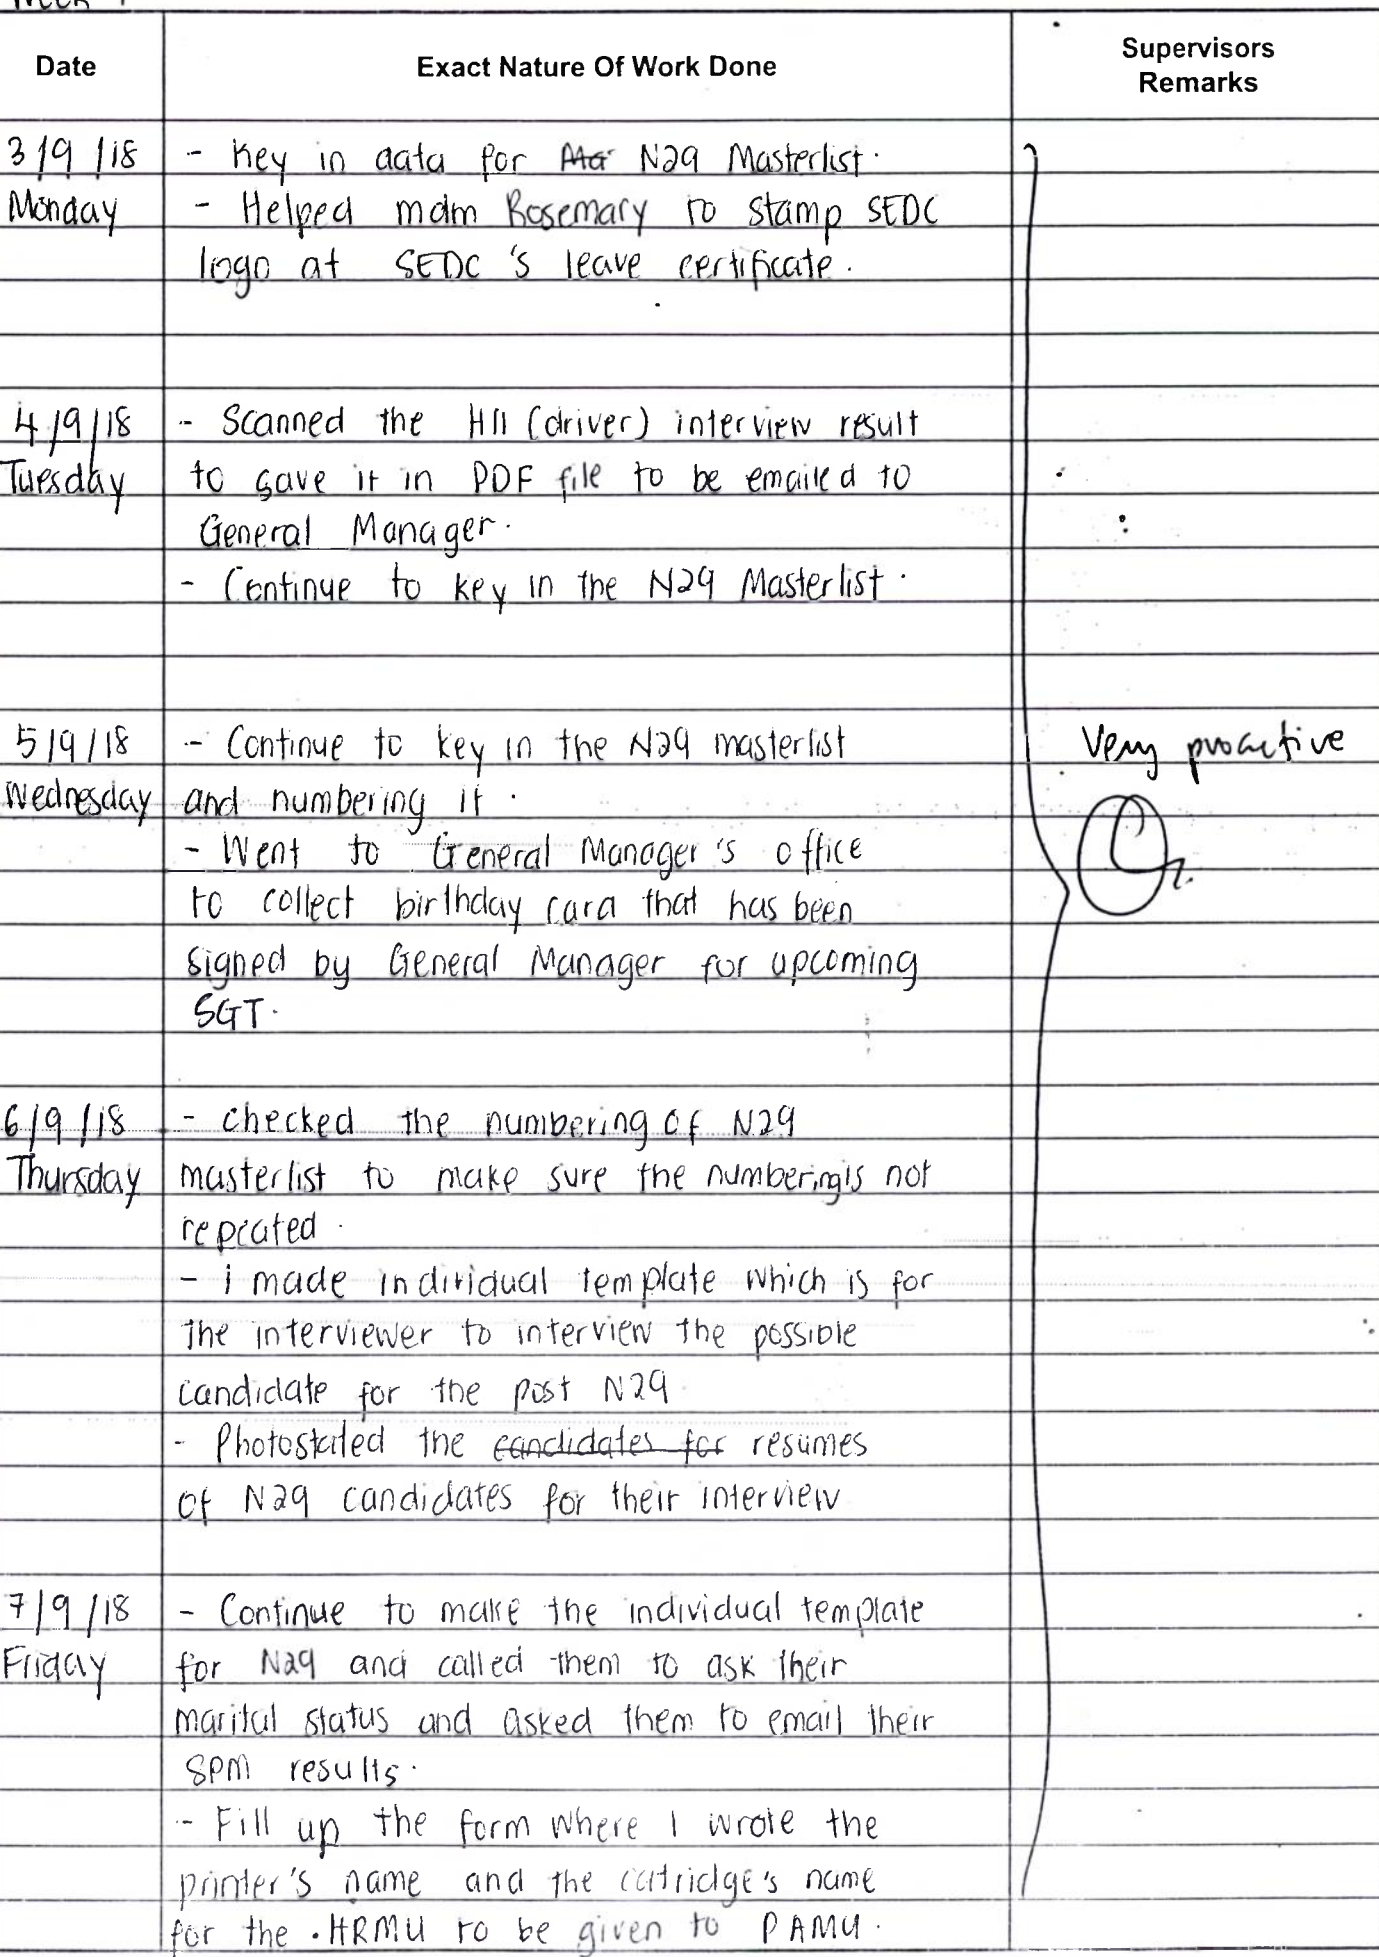 Date Exact Nature Of Work Done Supervisors
Remarks
3/9/18 - Key in data for Ma N29 Masterlist.
Monday - Helped mdm Rosemary to stamp SEDC
logo at SEDC's leave certificate.
4/9/18 - Scanned the H11 (driver) interview result
Tuesday to save it in PDF file to be emailed to
General Manager.
- Continue to key in the N29 Masterlist.
5/9/18 - Continue to key in the N29 masterlist Very proactive
Wednesday and numbering it.
- Went to General Manager's office
to collect birthday card that has been
signed by General Manager for upcoming
SGT.
6/9/18 - checked the numbering of N29
Thursday masterlist to make sure the numbering is not
repeated.
- i made individual template which is for
the interviewer to interview the possible
candidate for the post N29
- Photostated the candidates for resumes
of N29 candidates for their interview
7/9/18 - Continue to make the individual template
Friday for N29 and called them to ask their
marital status and asked them to email their
SPM results.
- Fill up the form where I wrote the
printer's name and the catridge's name
for the HRMU to be given to PAMU.